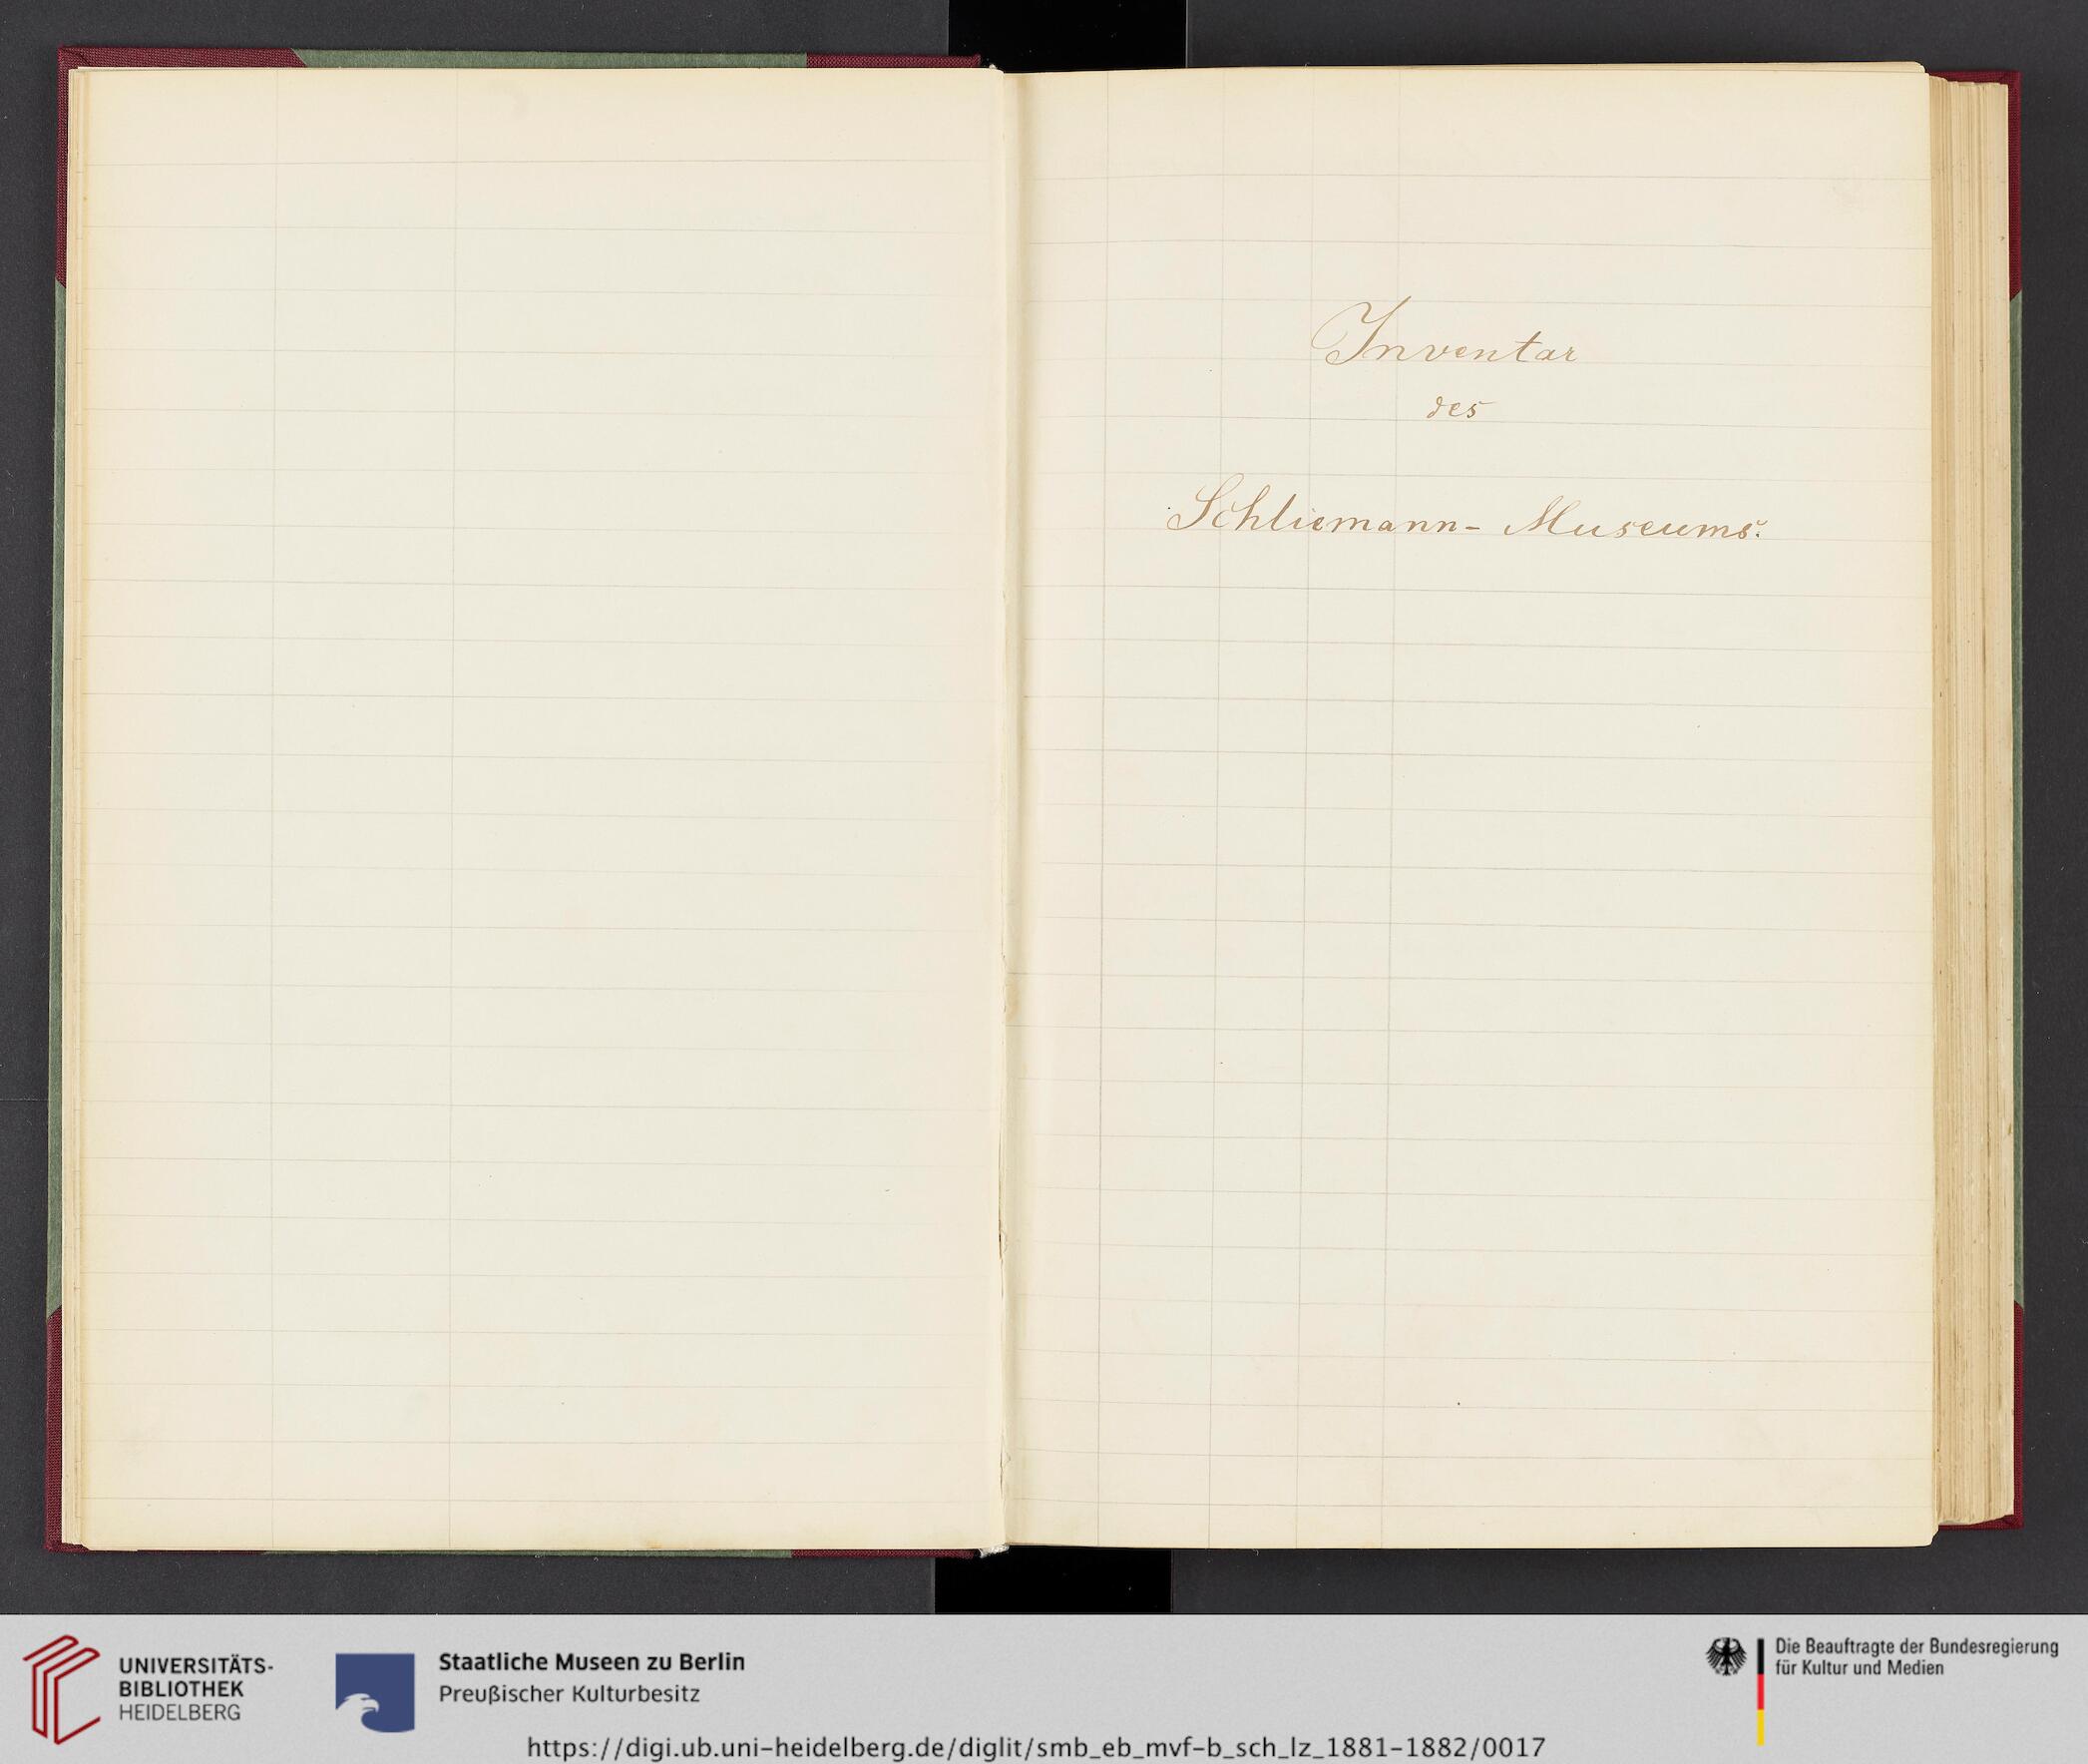 Inventar
des
Schliemann- Museums.
UNIVERSITÄTS-
BIBLIOTHEK
HEIDELBERG
Staatliche Museen zu Berlin
Preußischer Kulturbesitz
Die Beauftragte der Bundesregierung
für Kultur und Medien
https://digi.ub.uni-heidelberg.de/diglit/smb_eb_mvf-b_sch_lz_1881-1882/0017